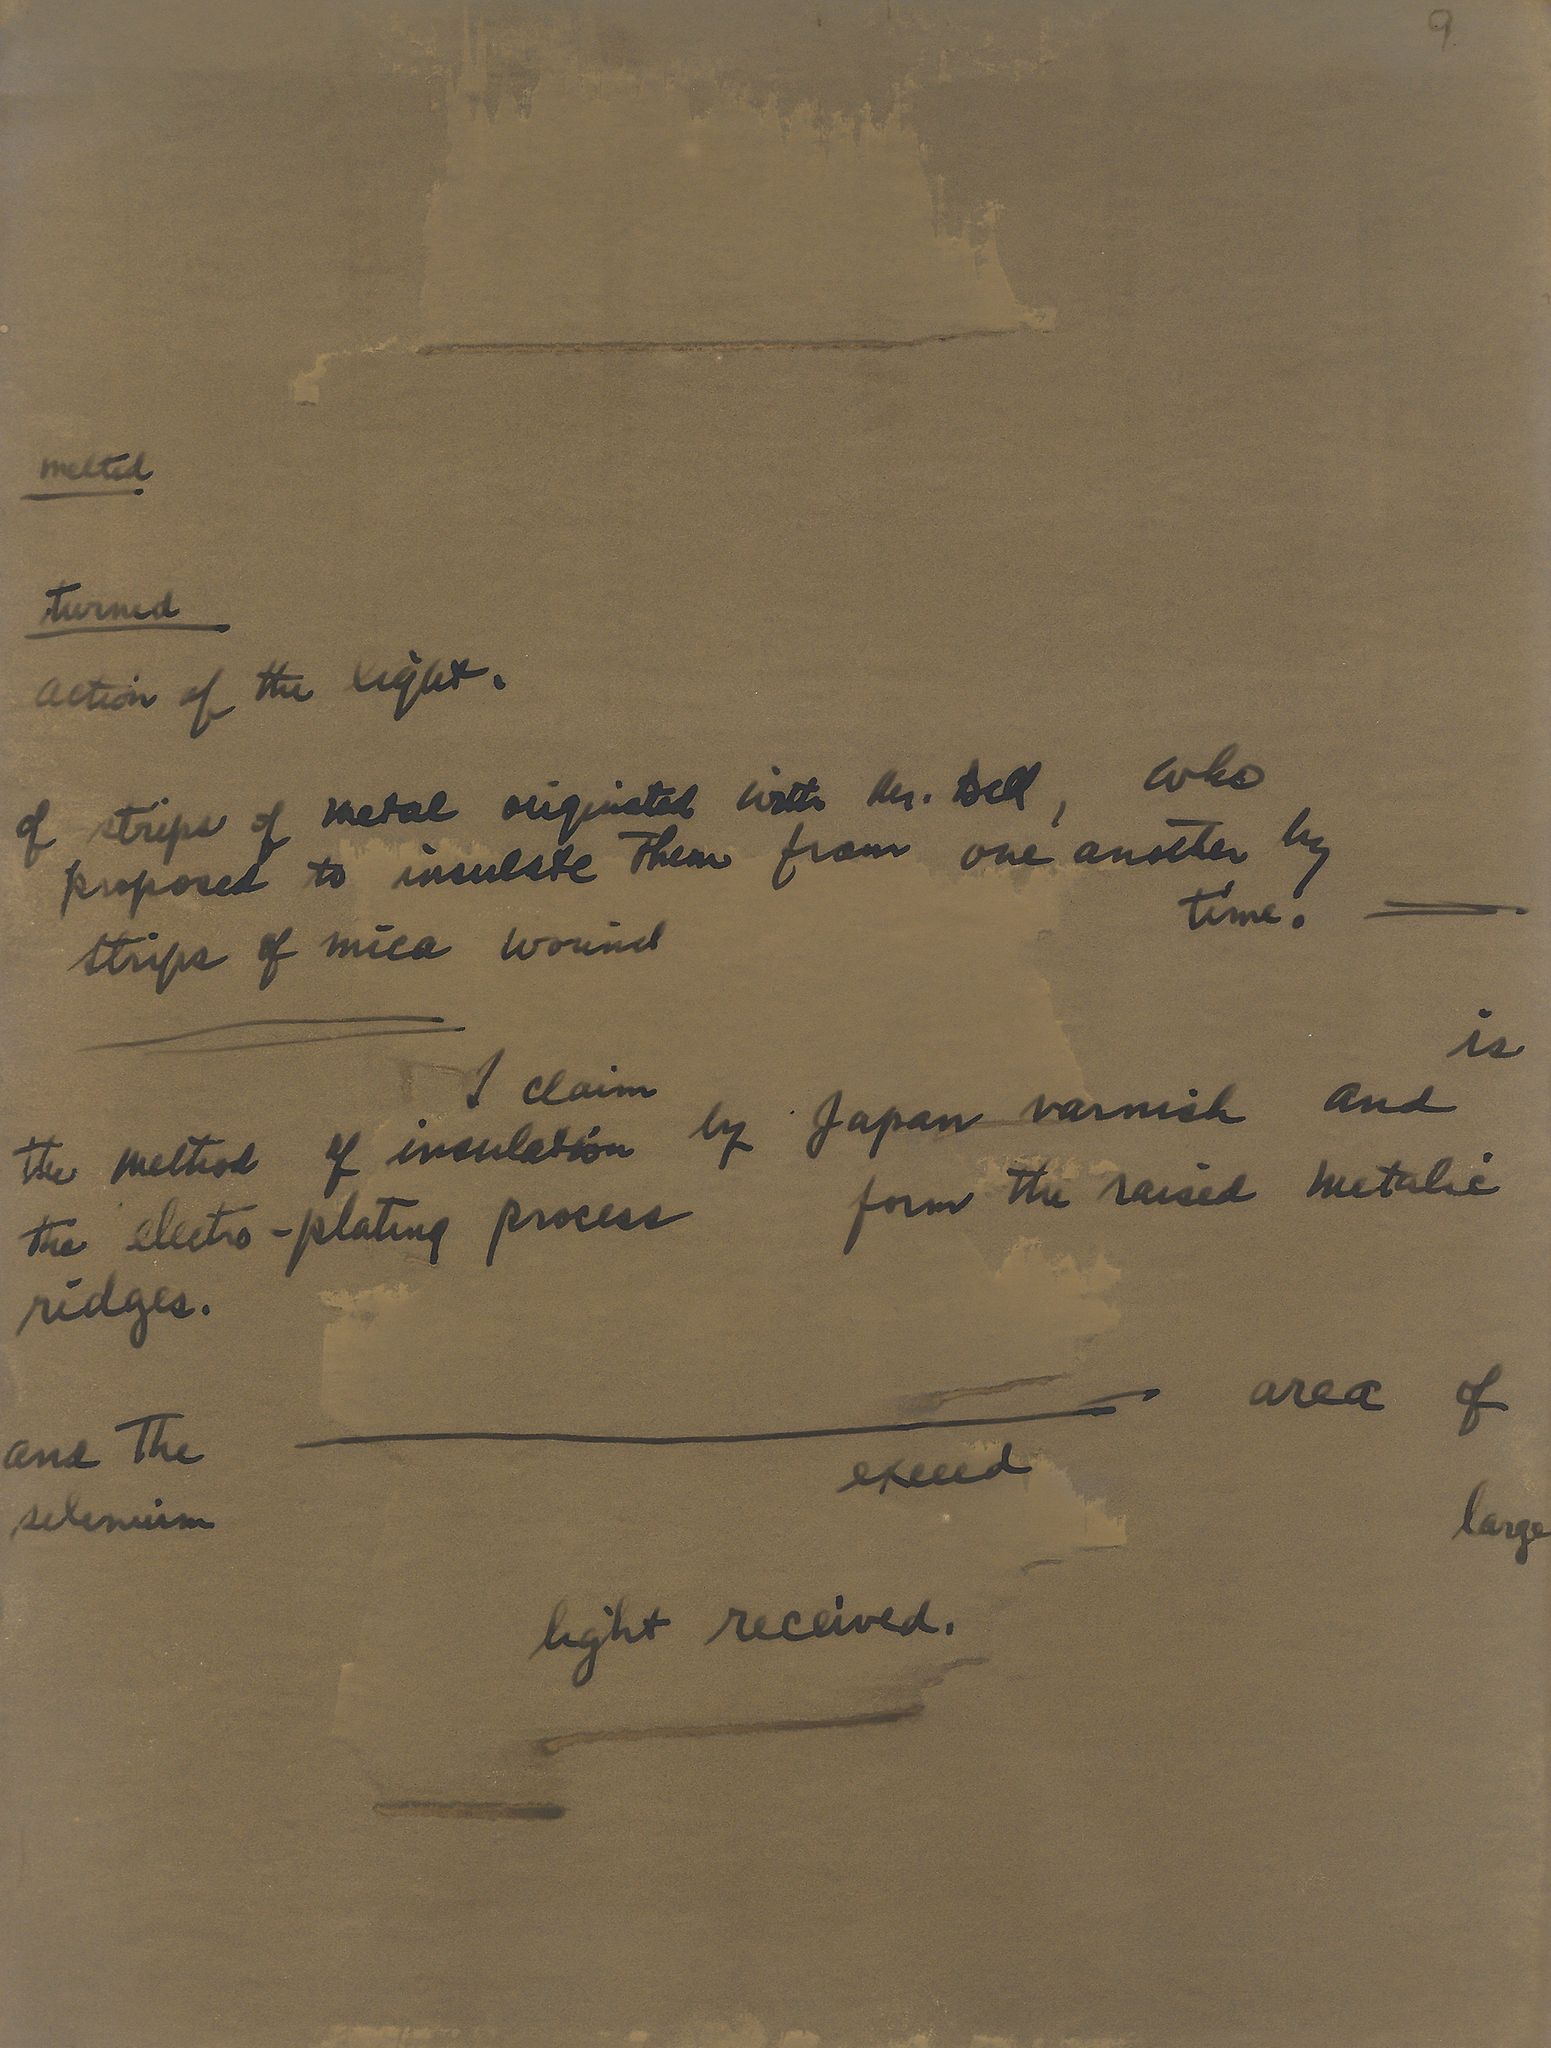 9
melted
turned
action of the light.
of strips of metal originated with Mr. Bell, who
proposed to insulate them from one another by
strips of mica wound time.
is
I claim
the method of insulation by Japan varnish and
the electro-plating process form the raised metalic
ridges.
area of
and the
exceed
selenium large
light received.